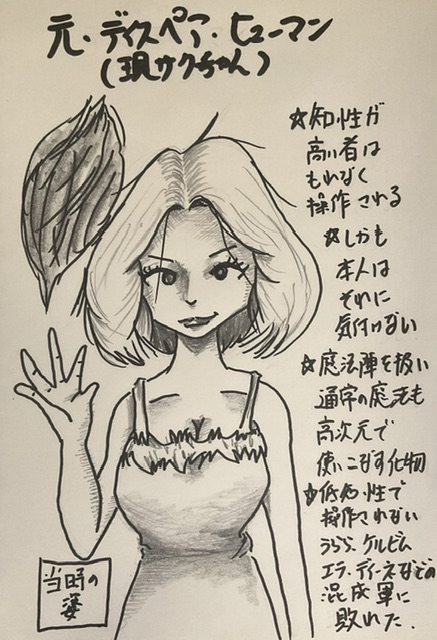 元・ディスペア・ヒューマン
(現サクちゃん)
☆知性が
高い者は
もれなく
操作される
☆しかも
本人は
それに
気付けない
☆魔法陣を扱い
通常の魔法も
高次元で
使いこなす化物
☆低知性で
操作されない
うらら、ケルビム
エラ・ディーネなどの
混成軍に
敗れた.
当時の
姿